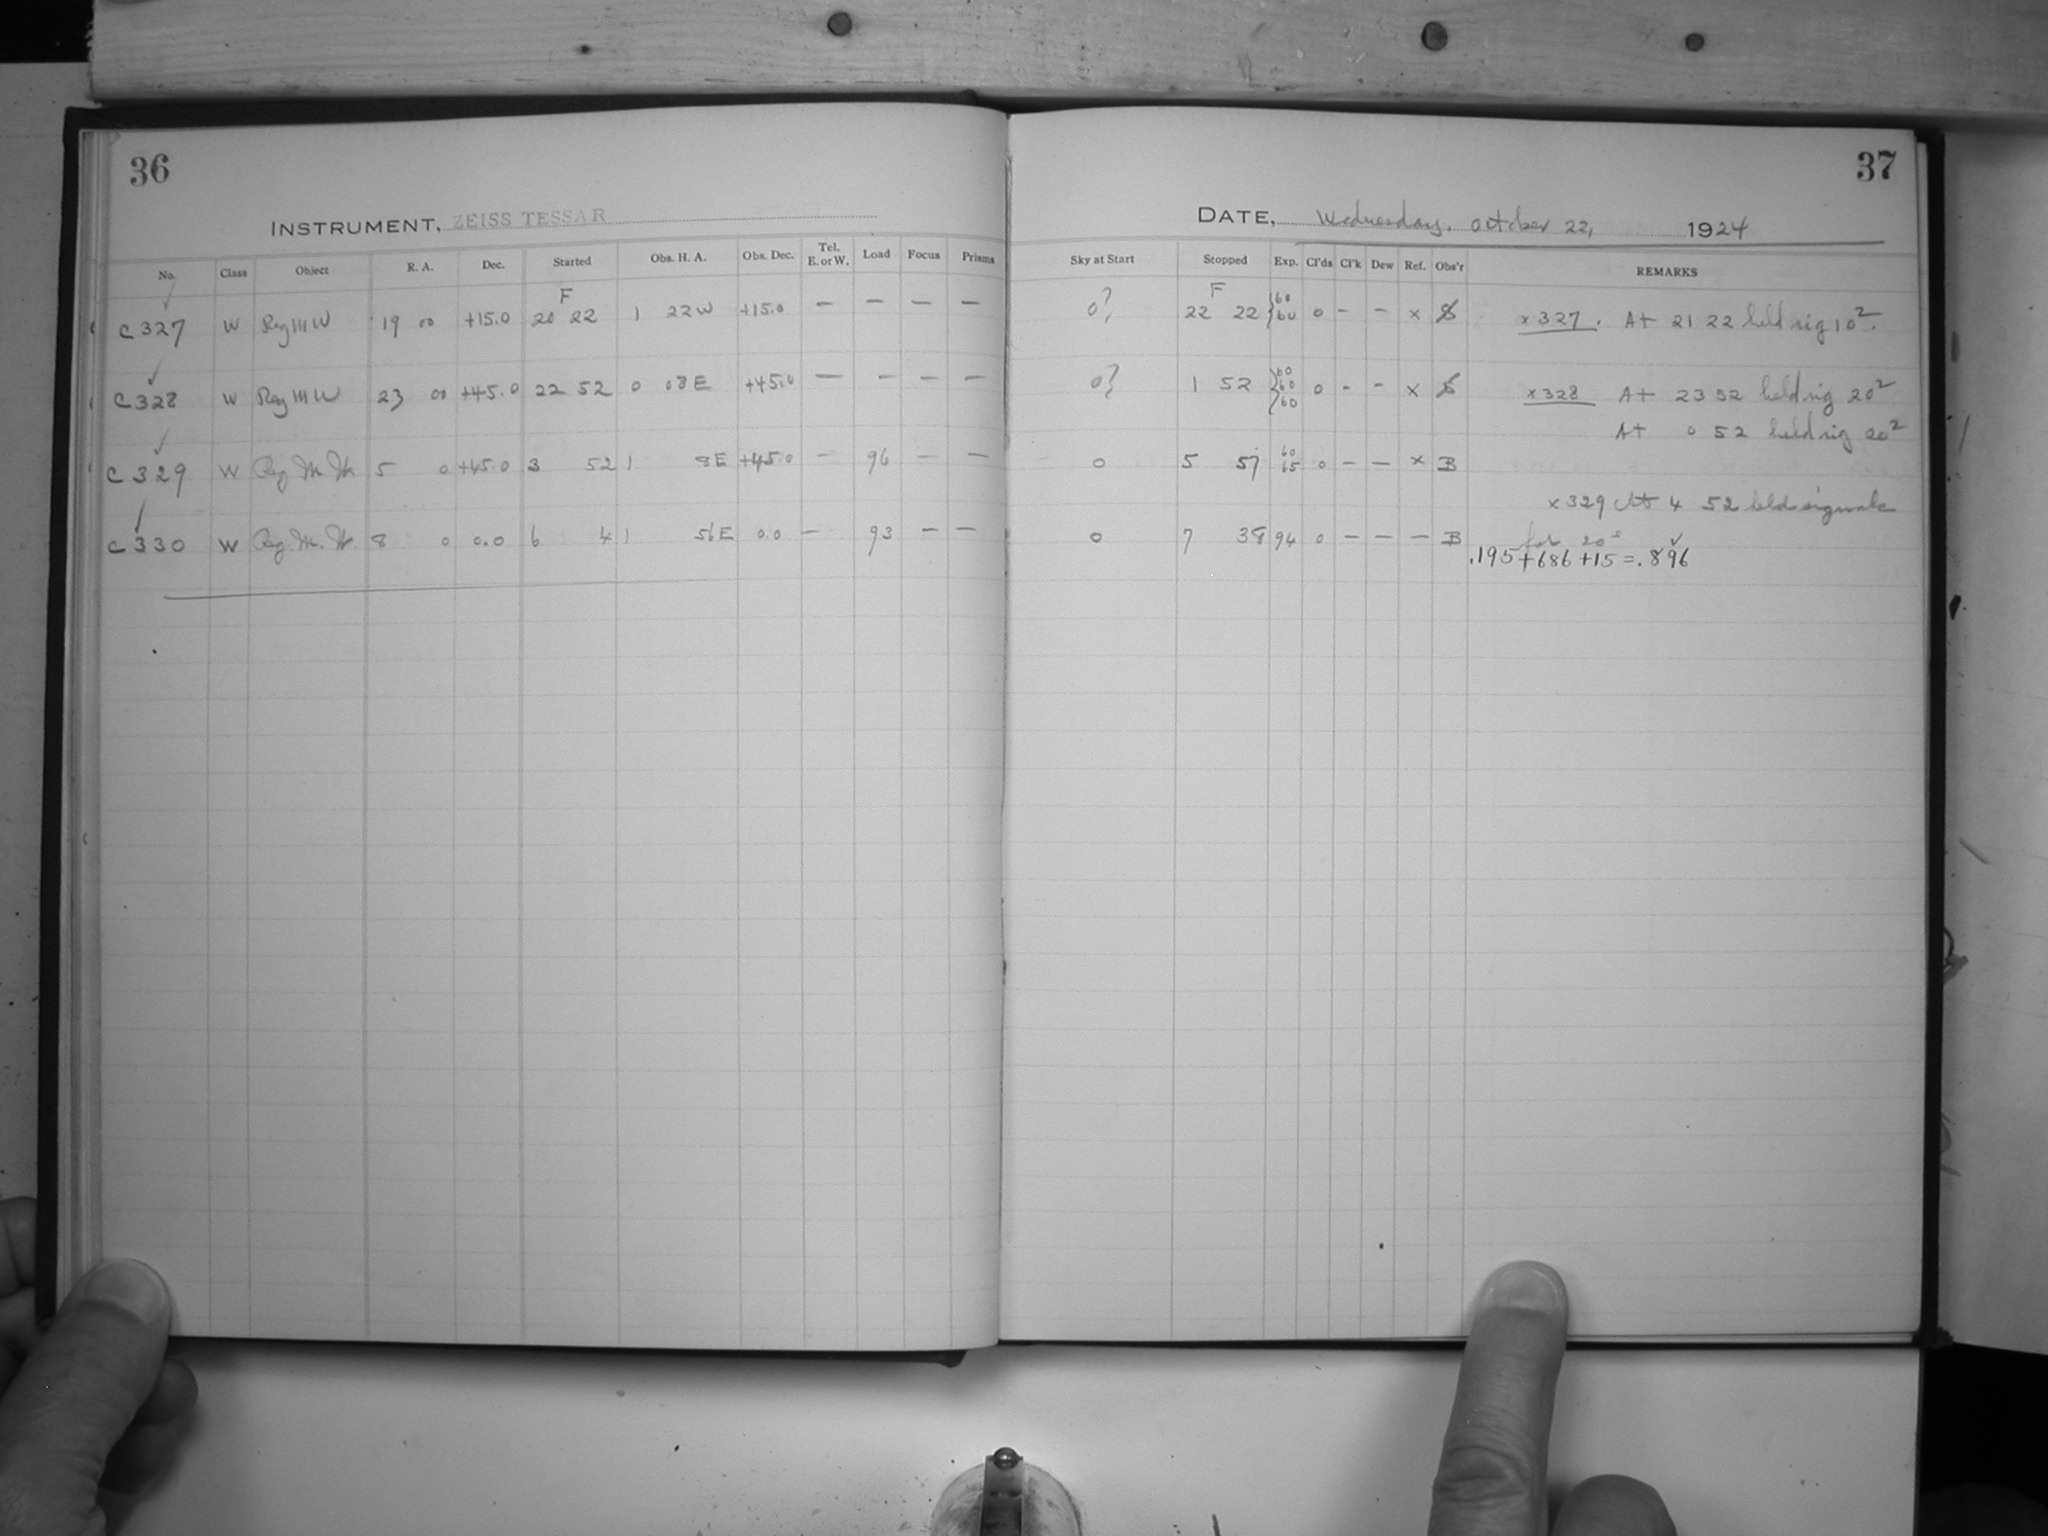 36
INSTRUMENT, ZEISS TESSAR
No. Class Object R. A. Dec. Started Obs. H. A. Obs. Dec. Tel. E. or W. Load Focus Prisms
F
C 327 W Reg M W 19 00 +15.0 20 22 1 22 W +15.0 — — — —
C 328 W Reg M W 23 00 +45.0 22 52 0 08 E +45.0 — — — —
C 329 W Reg M. W. 5 0 +45.0 3 52 1 8 E +45.0 — 96 — —
C 330 W Reg. M. W. 8 0 0.0 6 4 1 56 E 0.0 — 93 — —
37
DATE, Wednesday, October 22, 1924
Sky at Start Stopped Exp. Cl'ds Cl'k Dew Ref. Obs'r REMARKS
F
0? 22 22 60 60 0 - - x x 327. At 21 22 held sig 10s.
0? 1 52 60 60 60 0 - - x x 328 At 23 52 held sig 20s
At 0 52 held sig 20s
0 5 57 60 65 0 — — x B
x 329 At 4 52 held signals
0 7 38 94 0 — — — B for 20s
.195+686+15=.896